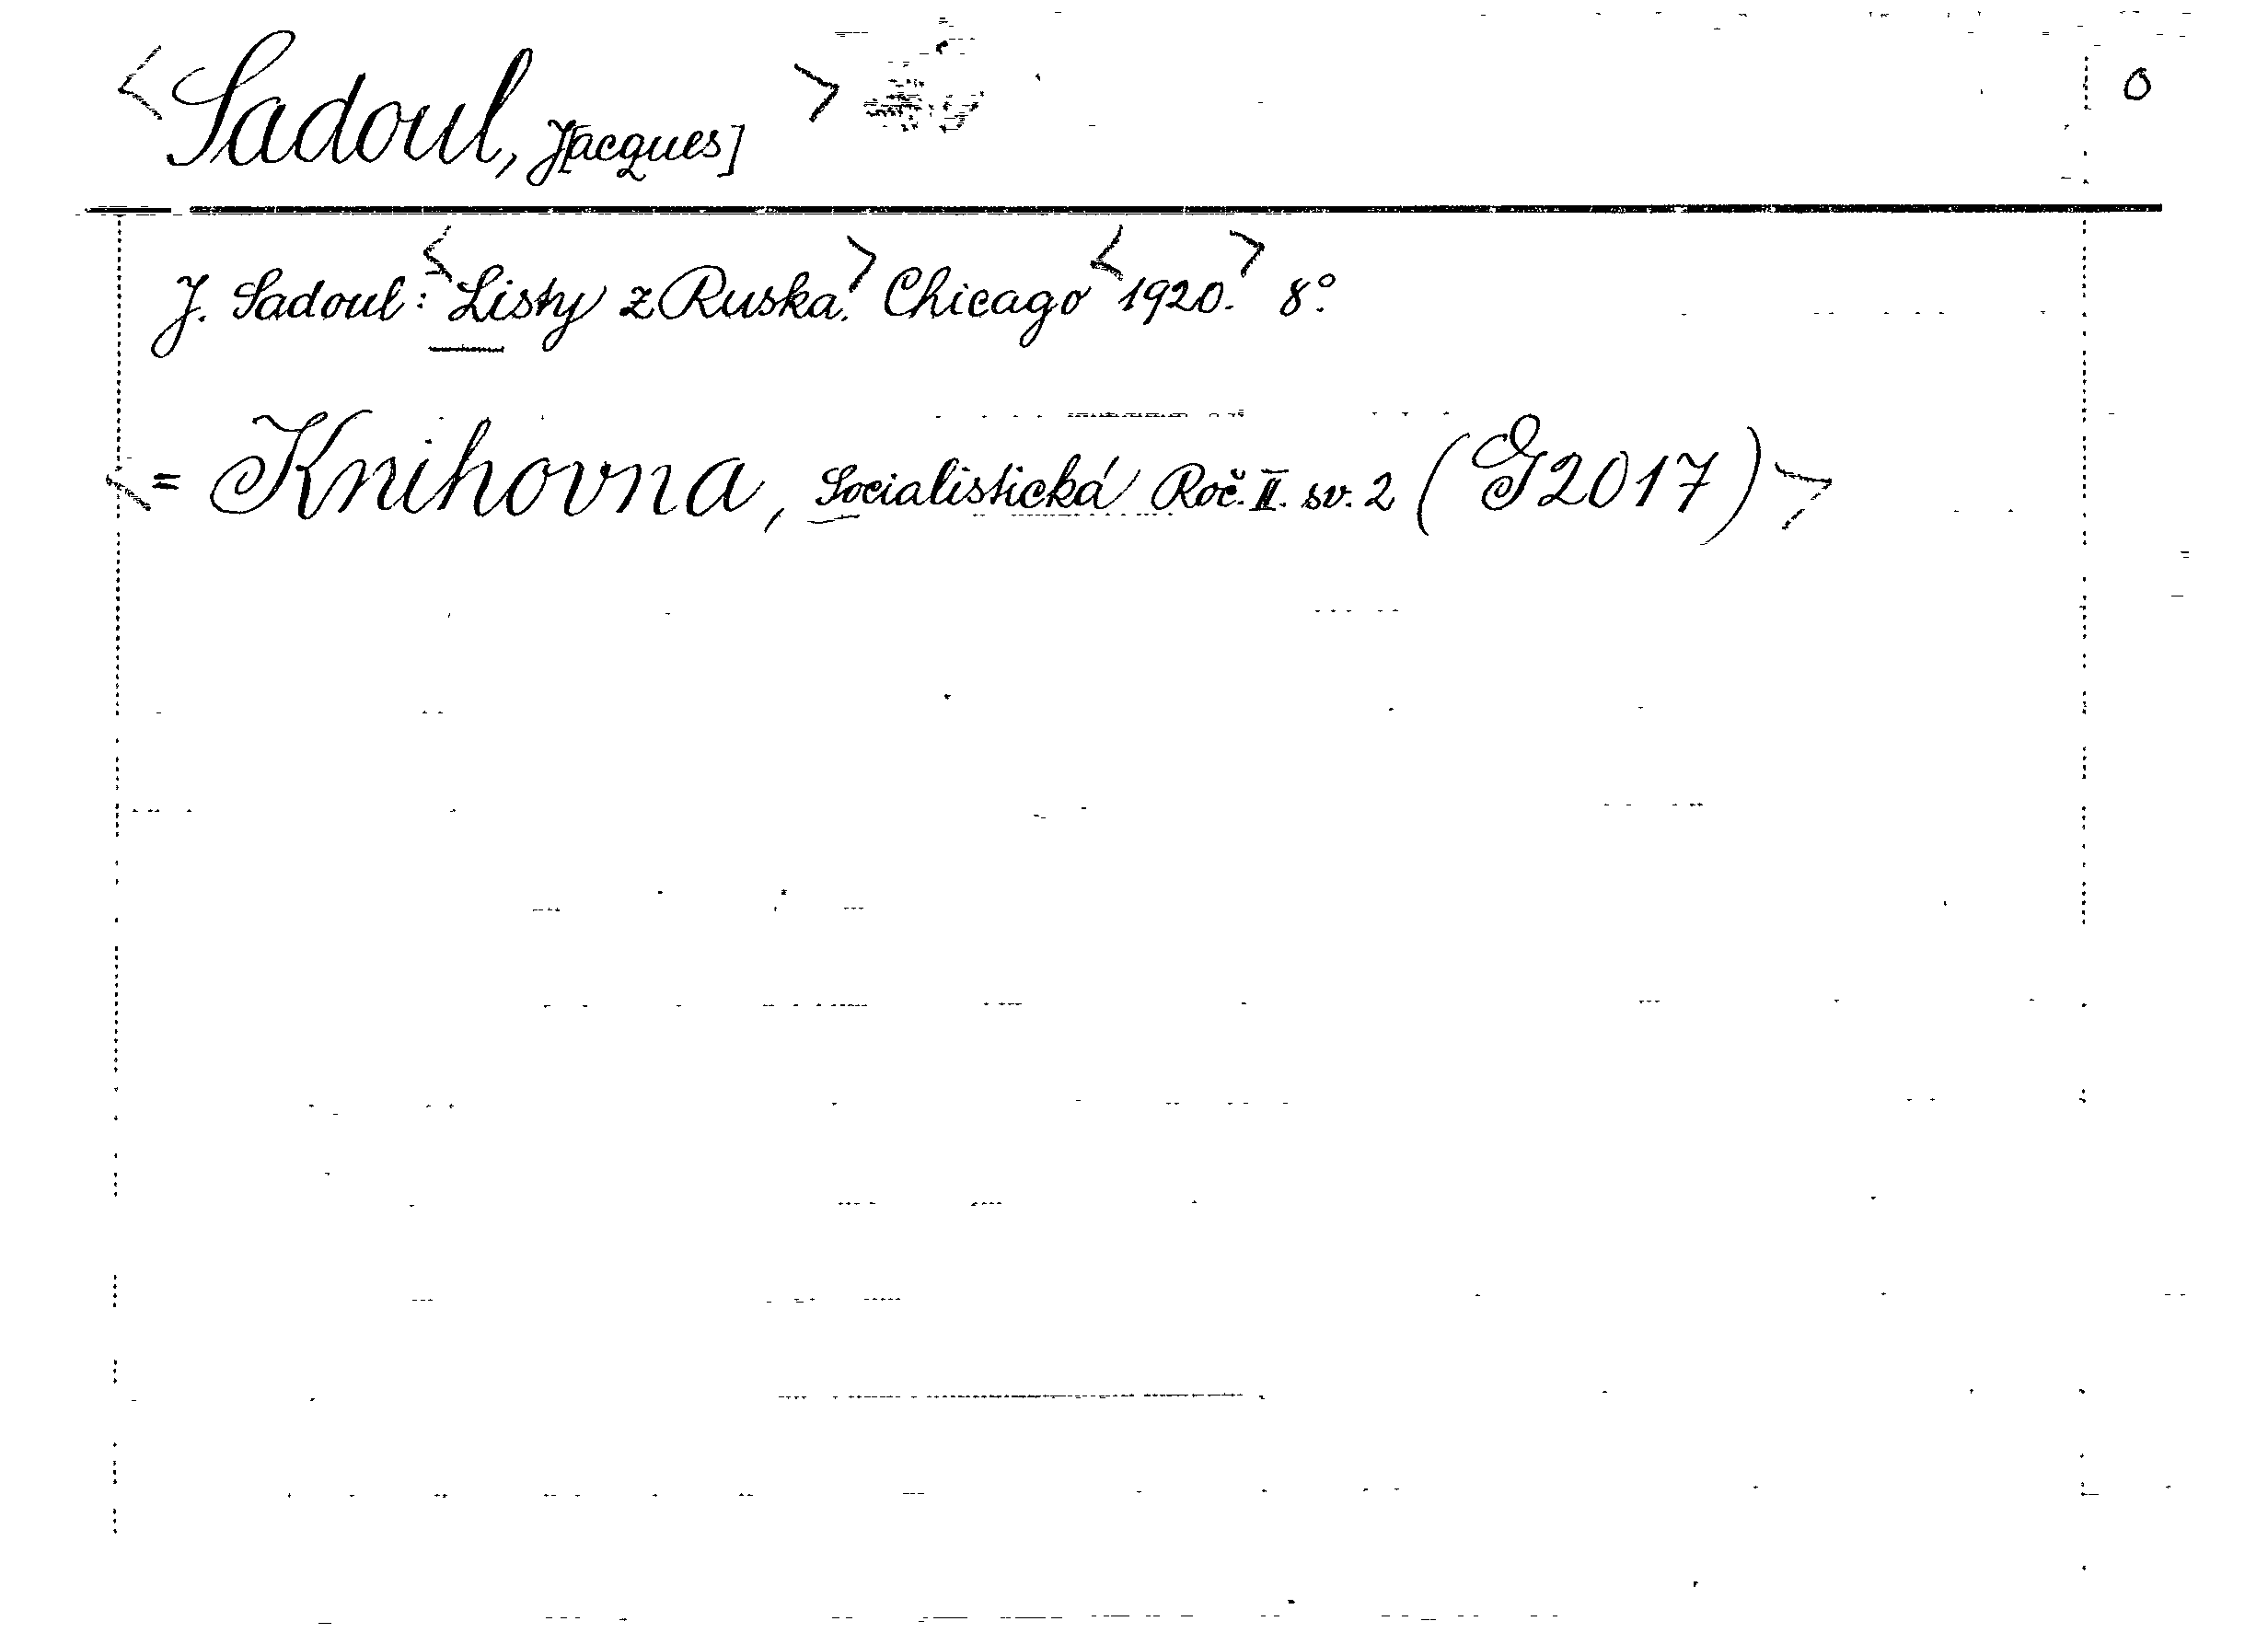 <Sadoul, J[acques]> O
J. Sadoul: <Listy z Ruska.> Chicago <1920.> 8°.
<= Knihovna, Socialistická Roč. II. sv. 2 (G 2017)>